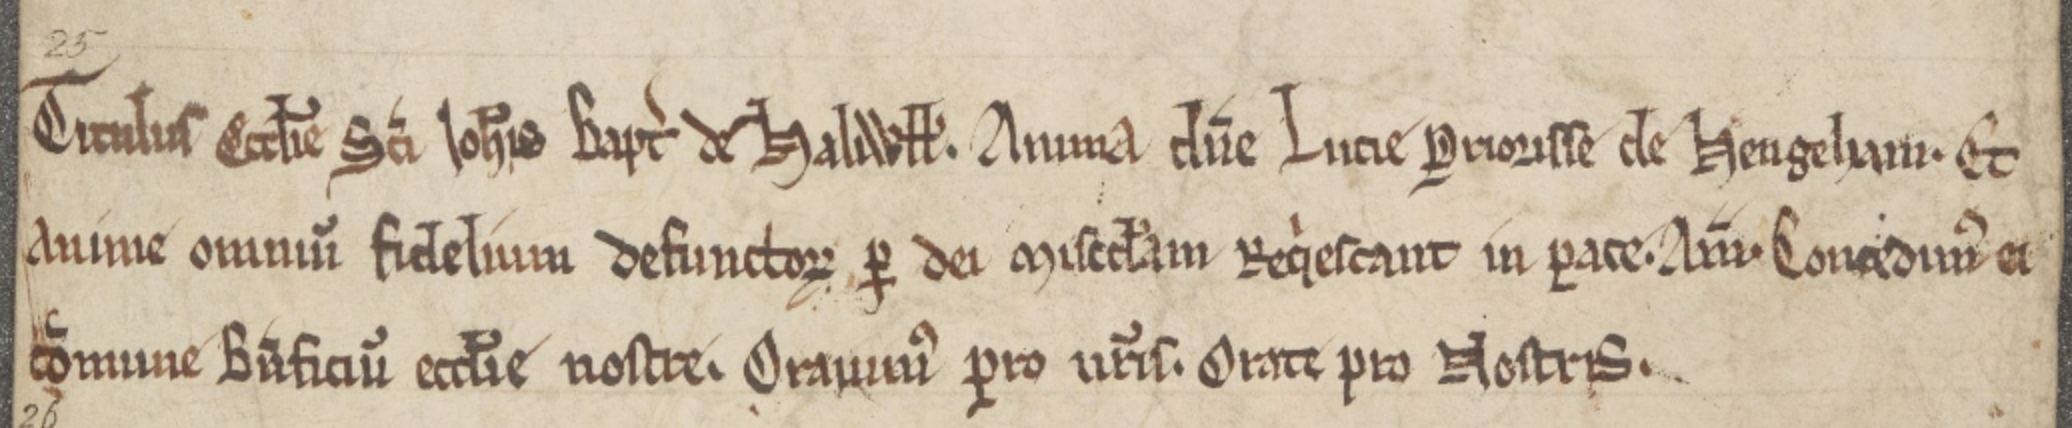 25
Titulus Eccl̄ie Sc̄i Ioh̄is Bapt̄ de Haliwll̄. Anima dn̄e Lucie Priorisse de Hengeham. Et
anime omniū fidelium defunctoꝝ ꝑ dei misc̄diam Reqⁱescant in pace. Am̄. Concedim᷒ ei
cōmune Bn̄ficiū eccl̄ie nostre. Orauim᷒ pro ur̄is. Orate pro Nostris.
26